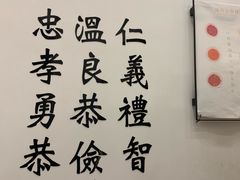 仁義禮智
溫良恭儉
忠孝勇恭